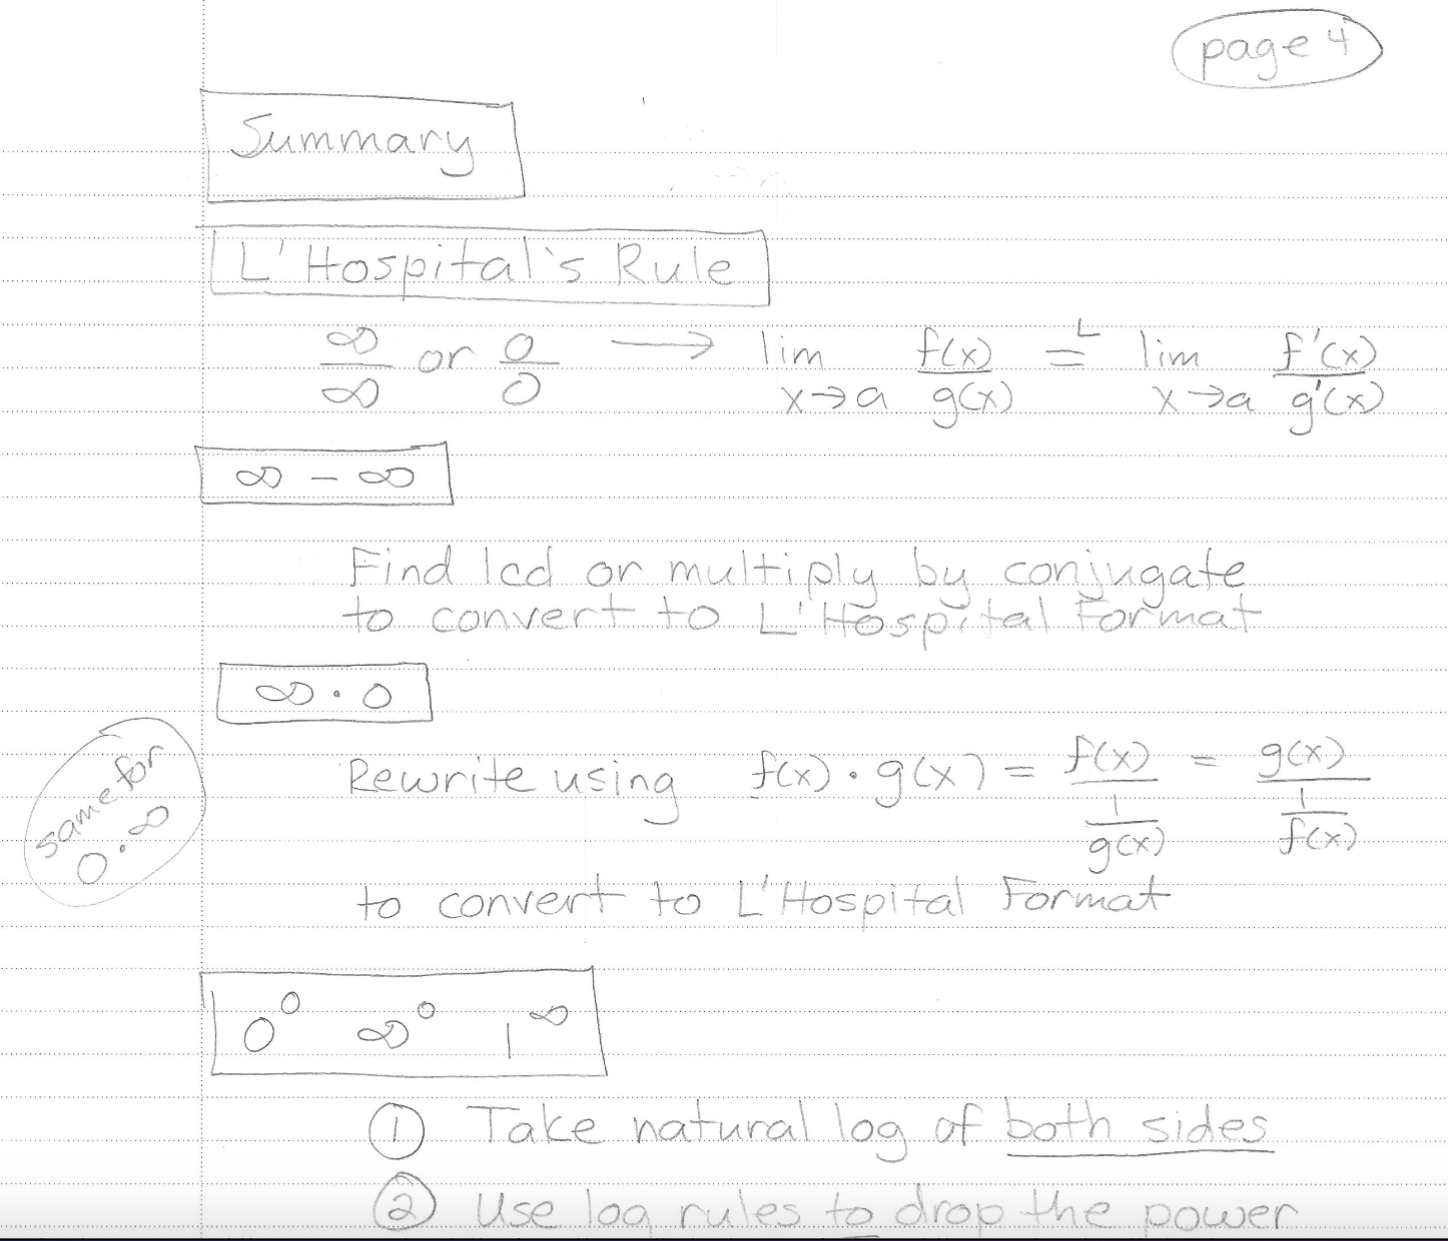 page 4
Summary
L'Hospital's Rule
∞/∞ or 0/0 → lim x→a f(x)/g(x) =ᴸ lim x→a f'(x)/g'(x)
∞ − ∞
Find lcd or multiply by conjugate
to convert to L'Hospital Format
∞ · 0
same for
0 · ∞
Rewrite using f(x) · g(x) = f(x)/(1/g(x)) = g(x)/(1/f(x))
to convert to L'Hospital Format
0⁰ ∞⁰ 1^∞
① Take natural log of both sides
② Use log rules to drop the power